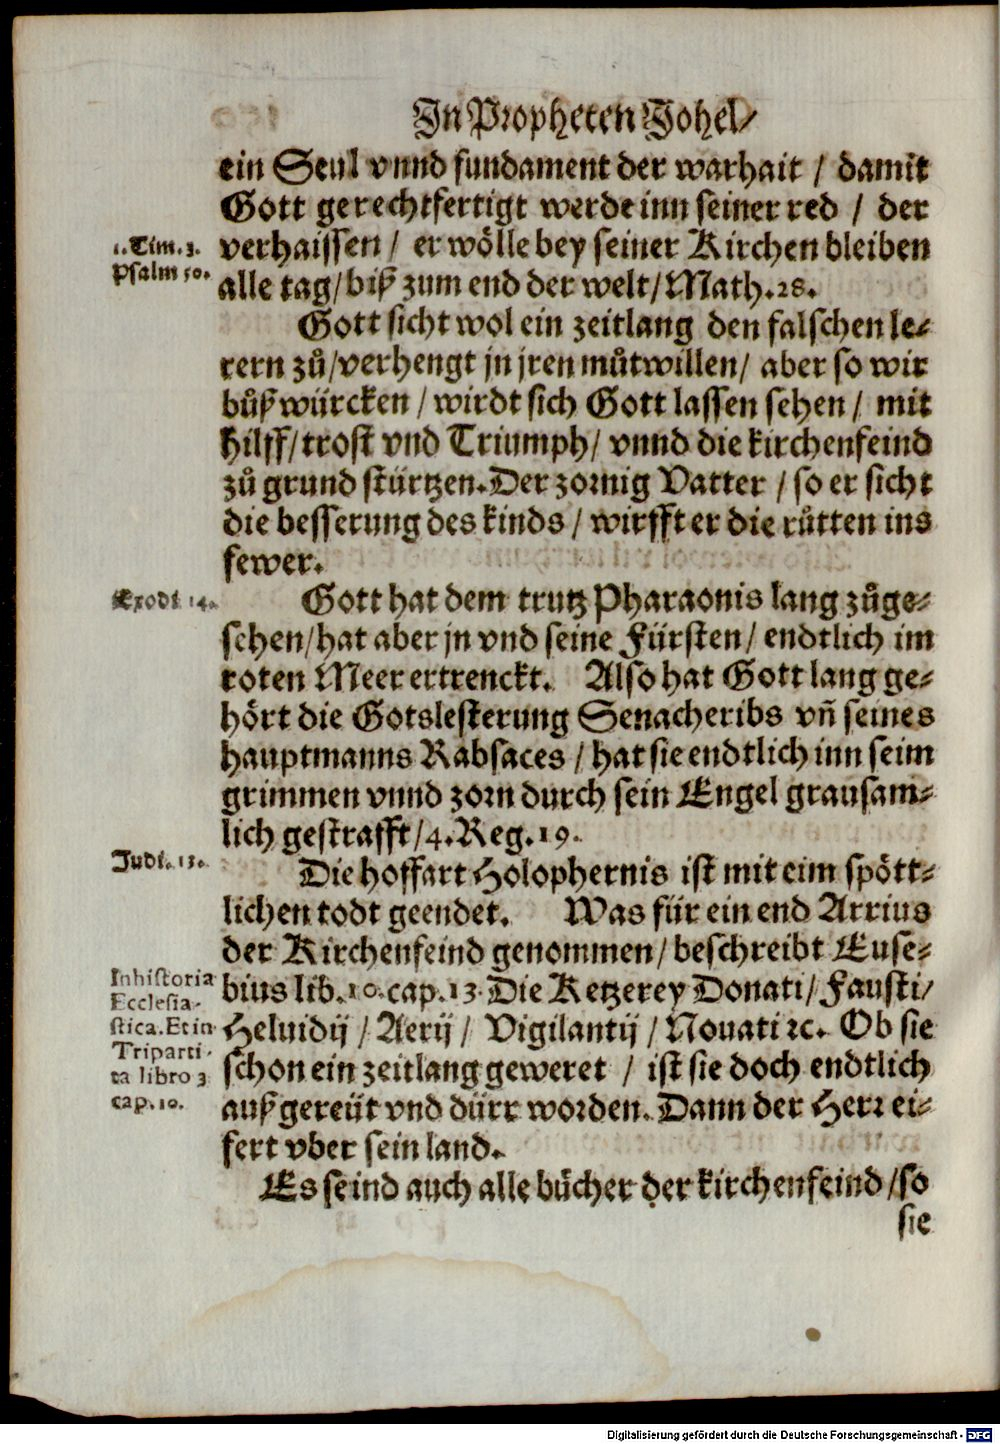 In Propheten Johel/
ein Seul vnnd fundament der warhait / damit
Gott gerechtfertigt werde inn seiner red / der
1. Tim. 3.
verhaissen / er wölle bey seiner Kirchen bleiben
Psalm 50.
alle tag/ biß zum end der welt/ Math. 28.
Gott sicht wol ein zeitlang den falschen le-
rern zů/ verhengt jn jren můtwillen/ aber so wir
bůß würcken / wirdt sich Gott lassen sehen / mit
hilff/ trost vnd Triumph/ vnnd die kirchenfeind
zů grund stürtzen. Der zornig Vatter / so er sicht
die besserung des kinds / wirfft er die růtten ins
fewer.
Exodi 14.
Gott hat dem trutz Pharaonis lang zůge-
sehen/ hat aber jn vnd seine Fürsten / endtlich im
roten Meer ertrenckt. Also hat Gott lang ge-
hört die Gotslesterung Senacheribs vñ seines
hauptmanns Rabsaces / hat sie endtlich inn seim
grimmen vnnd zorn durch sein Engel grausam-
lich gestrafft/ 4. Reg. 19.
Judi. 13.
Die hoffart Holophernis ist mit eim spött-
lichen todt geendet. Was für ein end Arrius
der Kirchenfeind genommen/ beschreibt Euse-
In historia
Ecclesia-
stica. Et in
Triparti-
ta libro 3
cap. 10.
bius lib. 10. cap. 13. Die Ketzerey Donati/ Fausti/
Heluidij / Aerij / Vigilantij / Nouati ꝛc. Ob sie
schon ein zeitlang geweret / ist sie doch endtlich
auß gereüt vnd dürr worden. Dann der Herr ei-
fert vber sein land.
Es seind auch alle bücher der kirchenfeind / so
sie
Digitalisierung gefördert durch die Deutsche Forschungsgemeinschaft - DFG